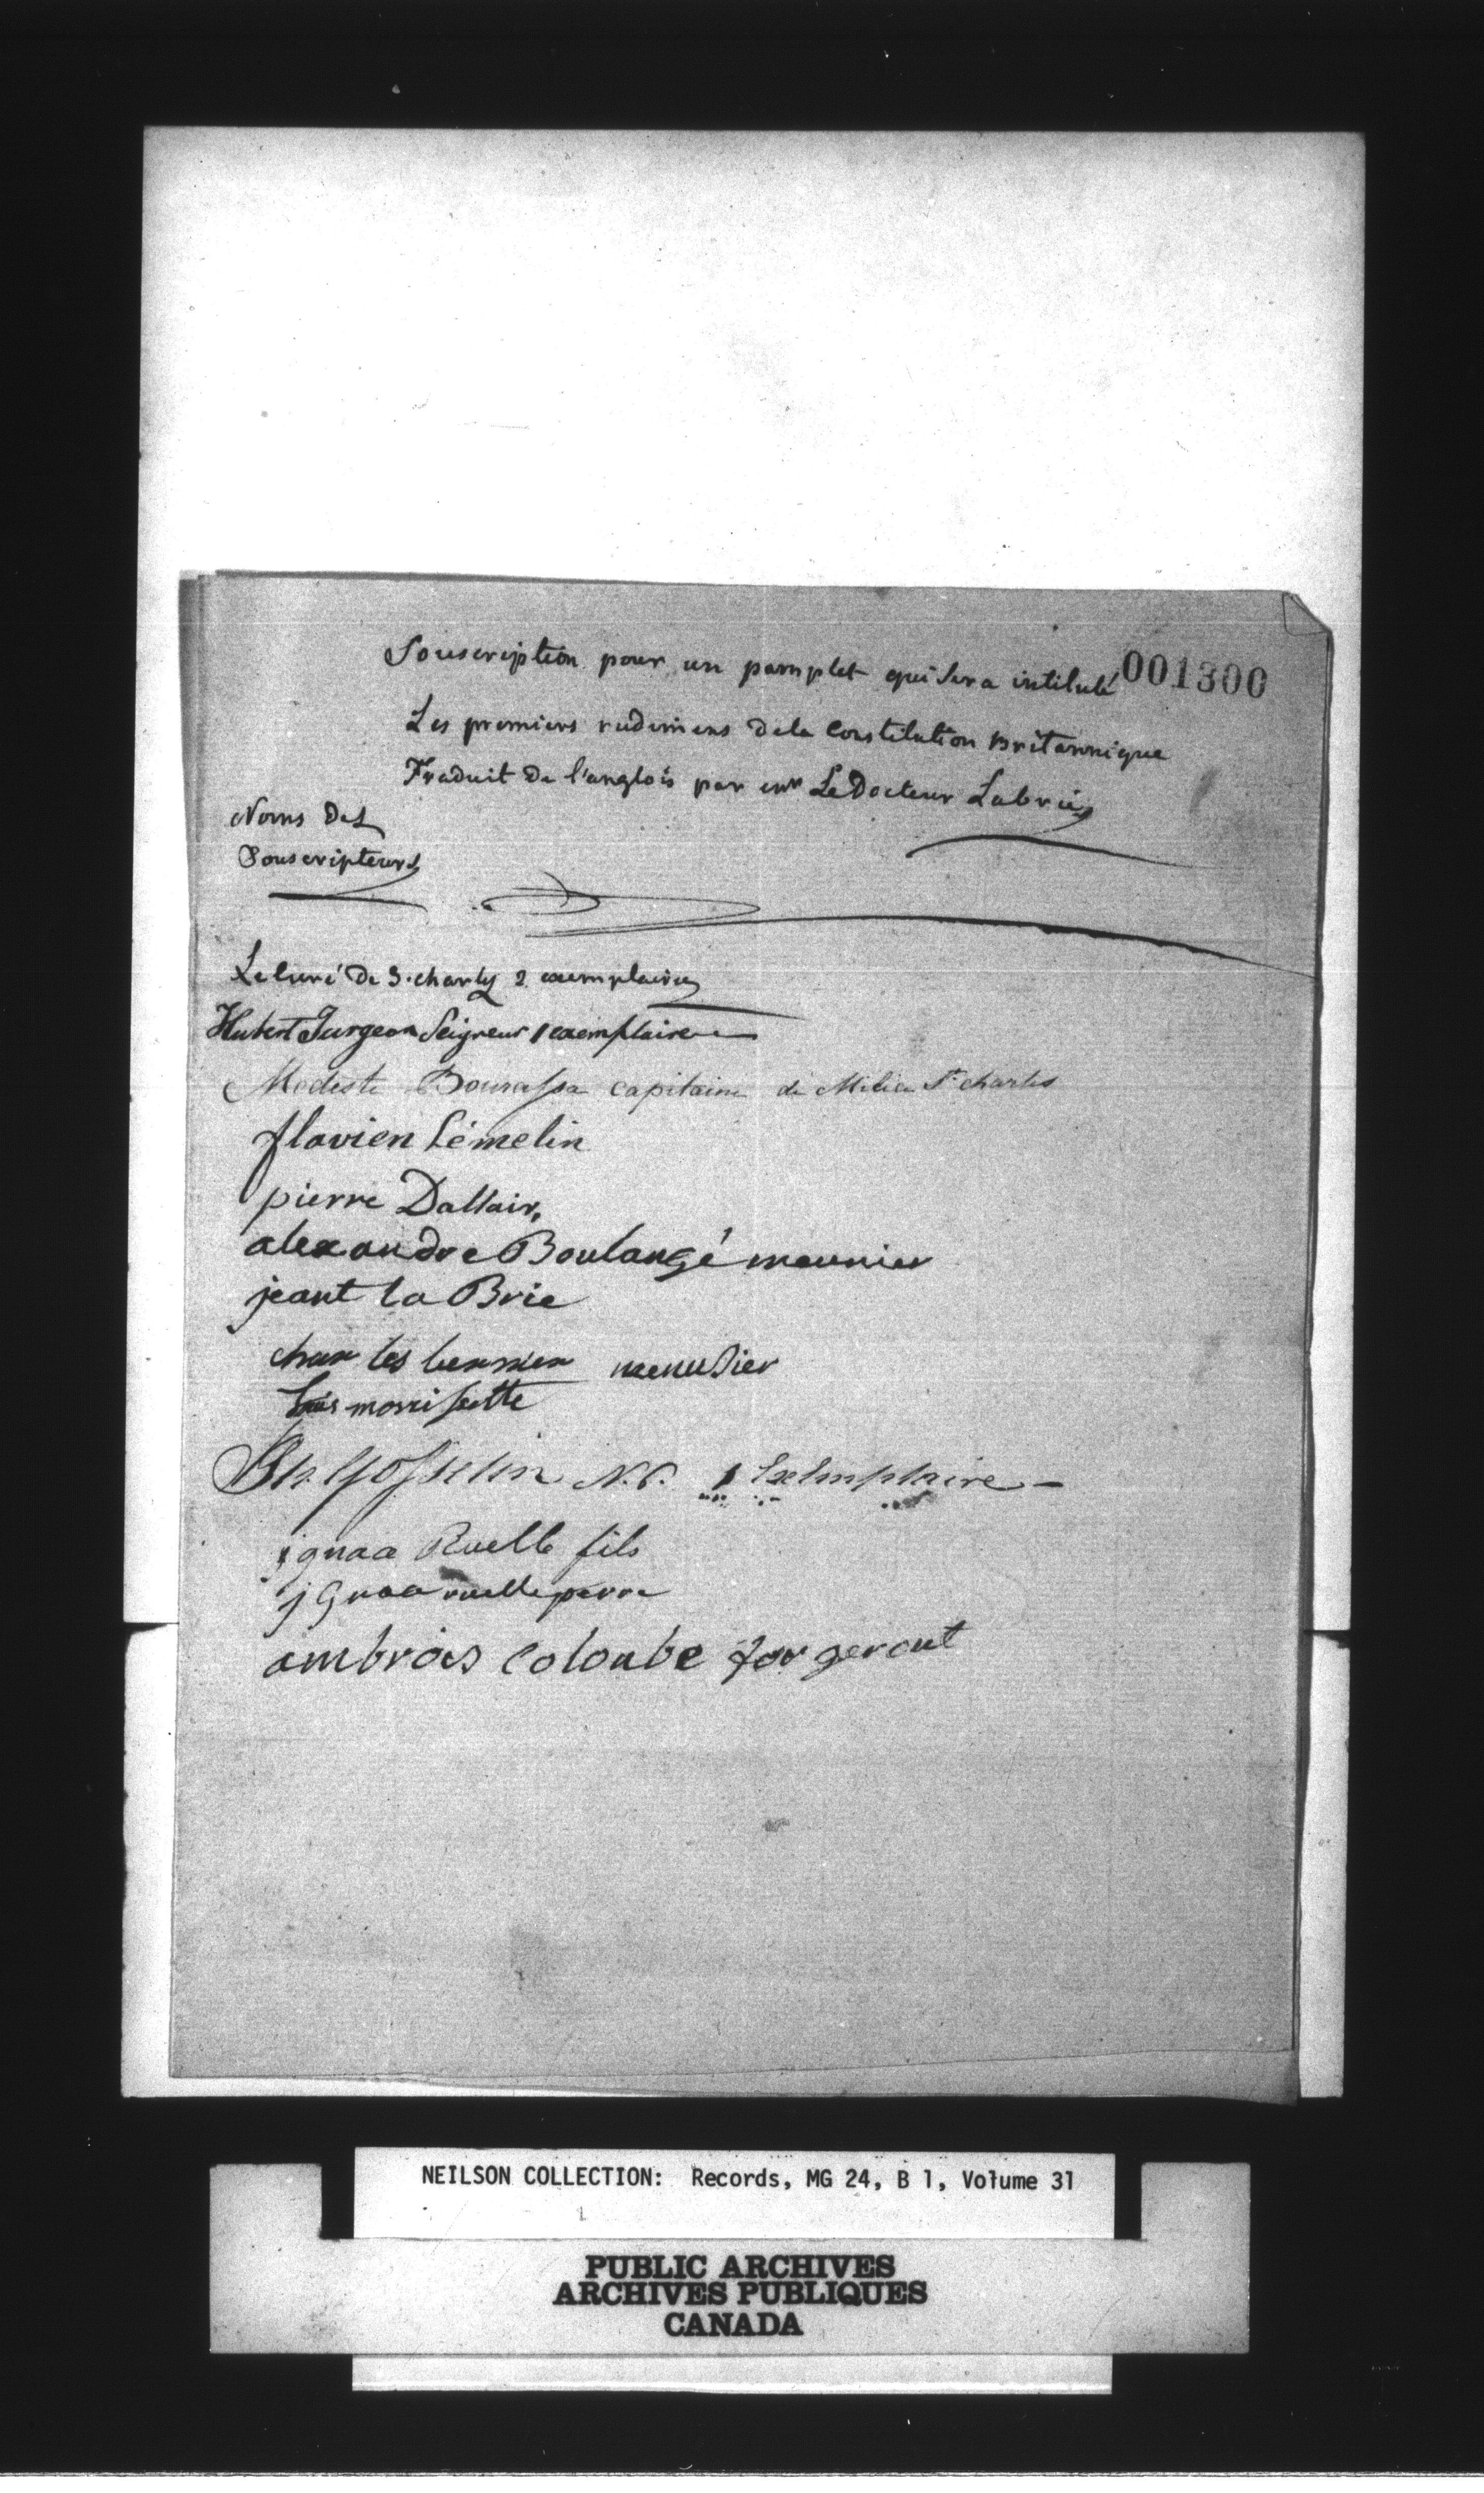 Souscription pour un pamplet qui sera intitulé 001300
Les premiers rudimens dela Constitution Britannique
Traduit de l'anglois par mr Le Docteur Labrie
Noms des
Souscripteurs
Le Curé de S. charles 2 exemplaires
Hubert Turgeon Seigneur 1 exemplaire
Modeste Bourassa capitaine de Milice St charles
flavien Lémelin
pierre Dallair
alexandre Boulangé meunier
jeant la Brie
char les menusier
Louis morrisette
Gosselin N.P. 1 Exemplaire
ignaa Ruelle fils
jgnaa ruelle perre
ambrois Coloube forgeront
NEILSON COLLECTION: Records, MG 24, B 1, Volume 31
PUBLIC ARCHIVES
ARCHIVES PUBLIQUES
CANADA